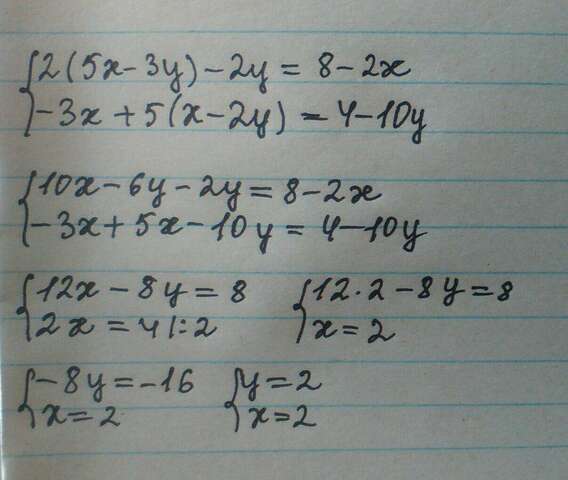 2(5x-3y)-2y = 8-2x
-3x+5(x-2y) = 4-10y
10x-6y-2y = 8-2x
-3x+5x-10y = 4-10y
12x-8y = 8
2x = 4 |:2
12·2-8y = 8
x = 2
-8y = -16
x = 2
y = 2
x = 2